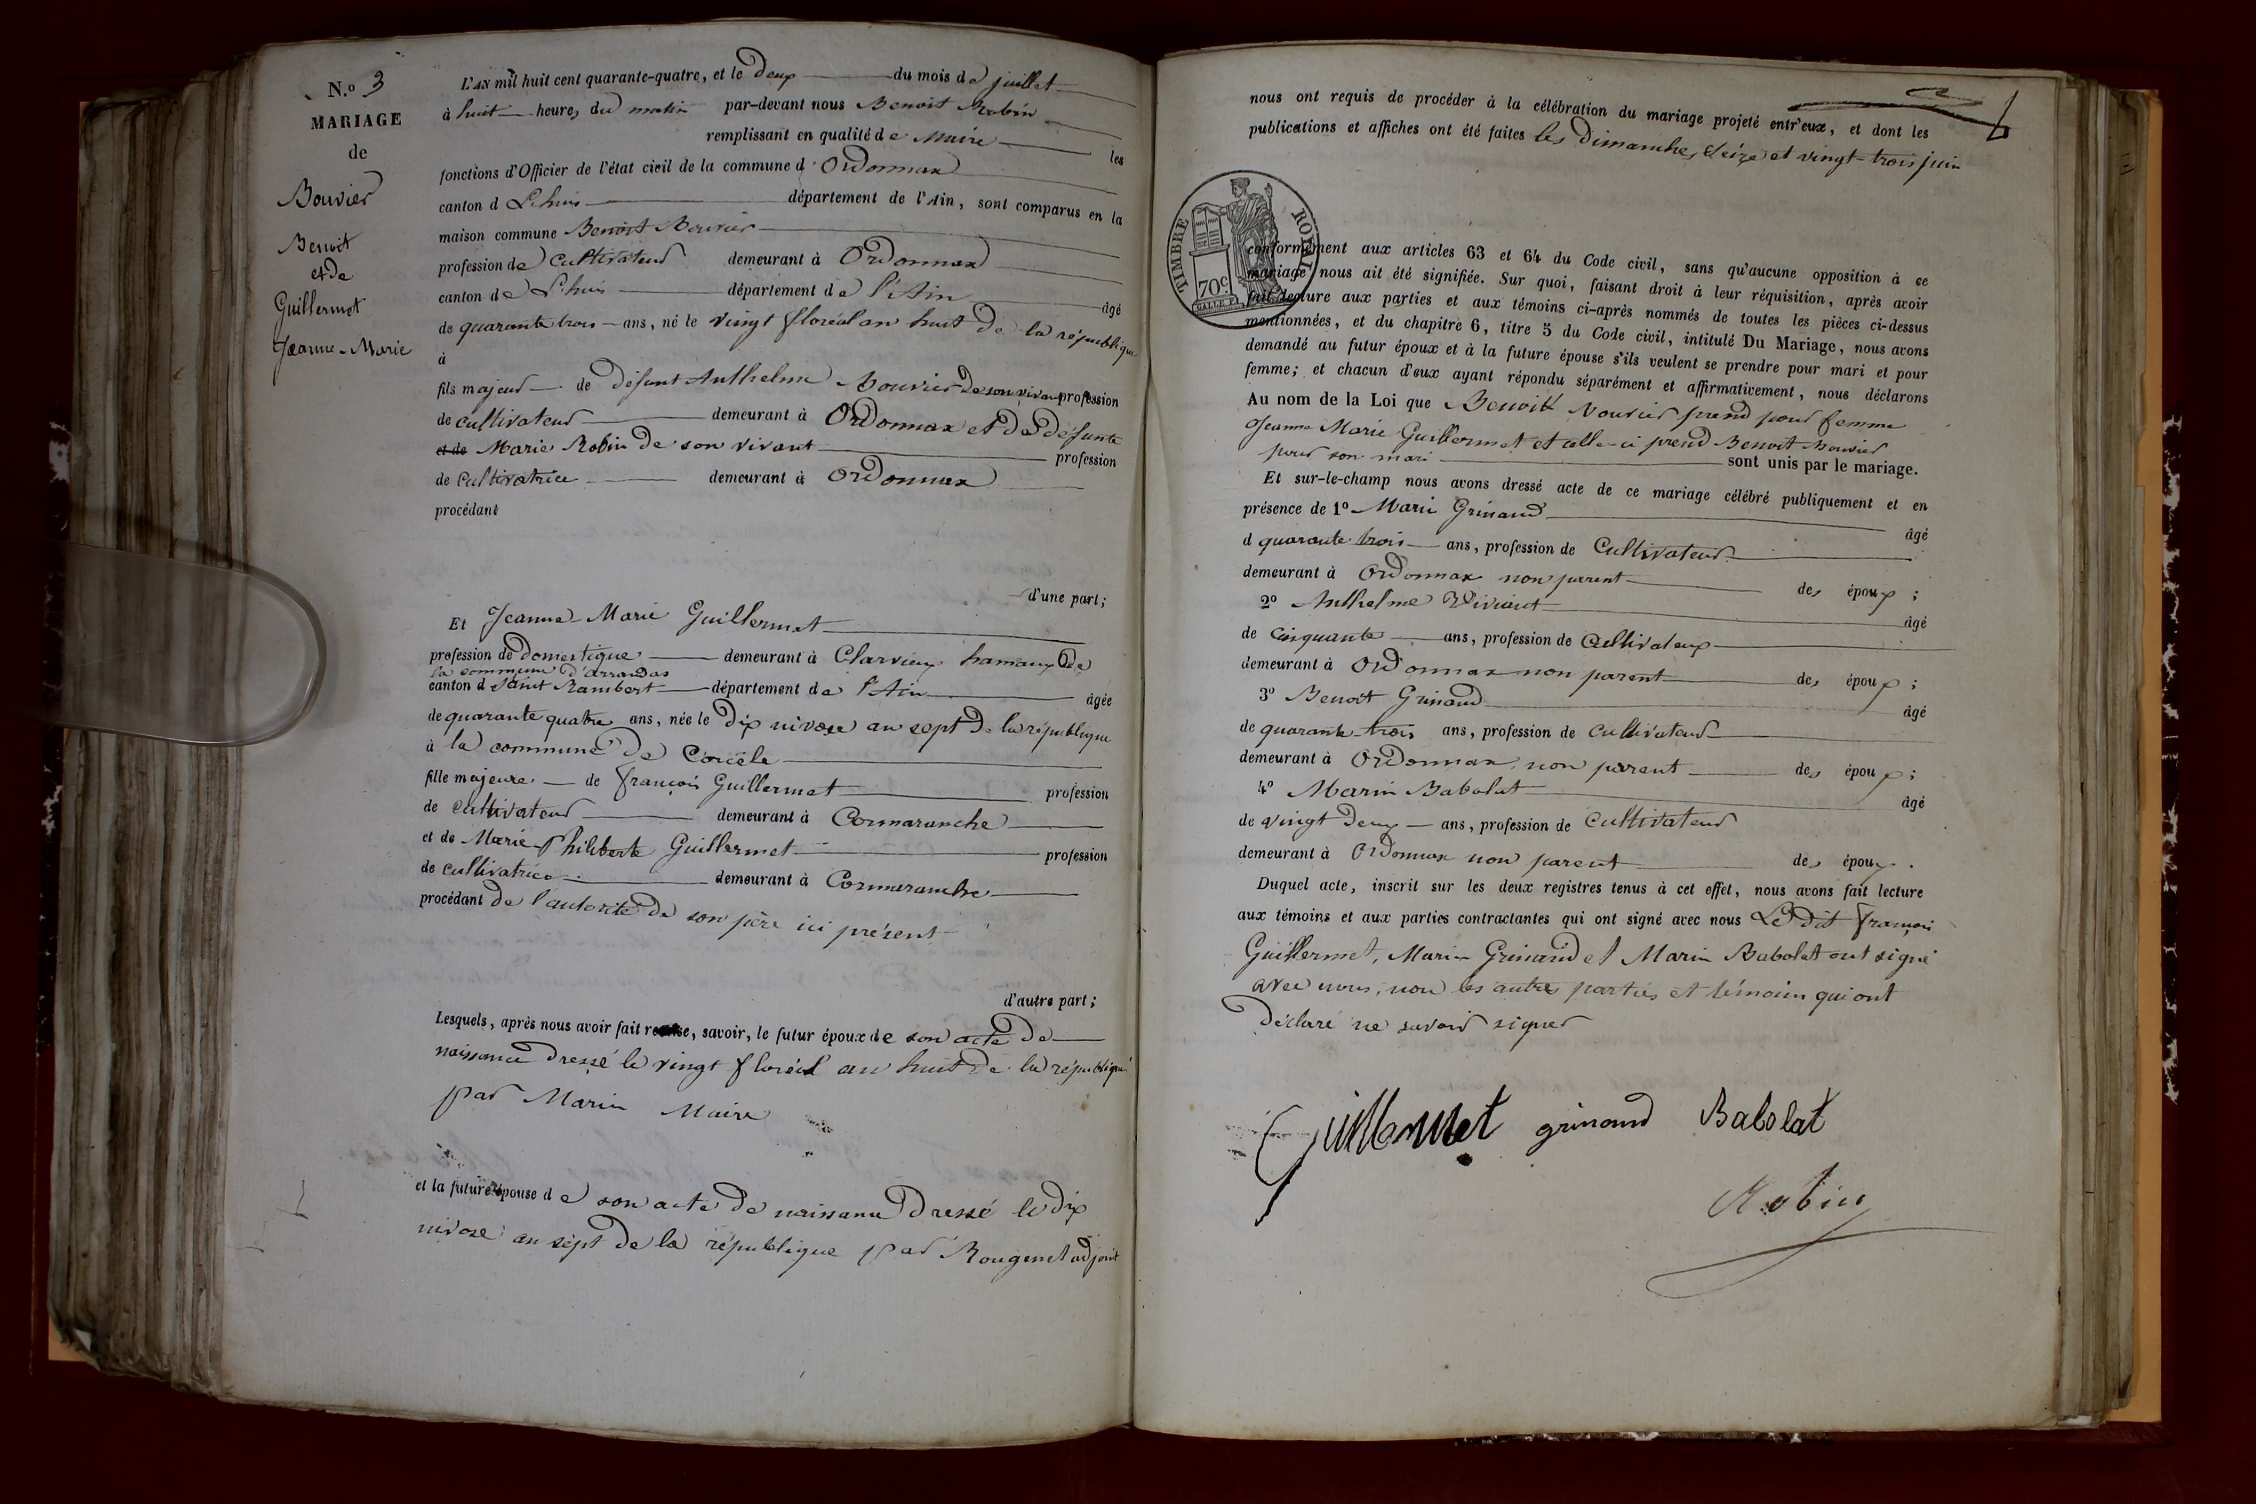 N.o 3
MARIAGE
de
Bouvier
Benoit
et de
Guillermet
Jeanne-Marie
L'AN mil huit cent quarante-quatre, et le deux du mois de juillet
à huit heures du matin par-devant nous Benoit Robin
remplissant en qualité de Maire les
fonctions d'Officier de l'état civil de la commune d'Ordonnax
canton d Lhuis département de l'Ain, sont comparus en la
maison commune Benoit Bouvier
profession de Cultivateur demeurant à Ordonnax
canton de Lhuis département de l'Ain âgé
de quarante trois ans, né le vingt floréal an huit de la république
à
fils majeur de défunt Anthelme Bouvier de son vivant profession
de cultivateur demeurant à Ordonnax et de défunte
et de Marie Robin de son vivant profession
de Cultivatrice demeurant à Ordonnax
procédant
d'une part;
Et Jeanne-Marie Guillermet
profession de domestique demeurant à Clarvieux hamaux de
la commune d'arrandas
canton d Saint Rambert département de l'Ain âgée
de quarante quatre ans, née le dix nivose an sept de la république
à la commune de Corcele
fille majeure de françois Guillermet profession
de cultivateur demeurant à Cormaranche
et de Marie Philiberte Guillermet profession
de cultivatrice demeurant à Cormaranche
procédant de l'autorité de son père ici présent
d'autre part;
Lesquels, après nous avoir fait remise, savoir, le futur époux de son acte de
naissance dressé le vingt floréal an huit de la république
par Marin Maire
et la future épouse de son acte de naissance dressé le dix
nivose an sept de la république par Rougemet adjoint
nous ont requis de procéder à la célébration du mariage projeté entr'eux, et dont les
publications et affiches ont été faites les dimanches seize et vingt-trois juin
TIMBRE ROYAL
70c
conformément aux articles 63 et 64 du Code civil, sans qu'aucune opposition à ce
mariage nous ait été signifiée. Sur quoi, faisant droit à leur réquisition, après avoir
fait lecture aux parties et aux témoins ci-après nommés de toutes les pièces ci-dessus
mentionnées, et du chapitre 6, titre 5 du Code civil, intitulé Du Mariage, nous avons
demandé au futur époux et à la future épouse s'ils veulent se prendre pour mari et pour
femme; et chacun d'eux ayant répondu séparément et affirmativement, nous déclarons
Au nom de la Loi que Benoit Bouvier prend pour femme
Jeanne Marie Guillermet et celle-ci prend Benoit Bouvier
pour son mari sont unis par le mariage.
Et sur-le-champ nous avons dressé acte de ce mariage célébré publiquement et en
présence de 1o Marin Grinand âgé
d quarante trois ans, profession de Cultivateur
demeurant à Ordonnax non parent des époux;
2o Anthelme Viviant âgé
de cinquante ans, profession de Cultivateur
demeurant à Ordonnax non parent des époux;
3o Benoit Grinand âgé
de quarante-trois ans, profession de cultivateur
demeurant à Ordonnax non parent des époux;
4o Marin Babolat âgé
de vingt deux ans, profession de Cultivateur
demeurant à Ordonnax non parent des époux.
Duquel acte, inscrit sur les deux registres tenus à cet effet, nous avons fait lecture
aux témoins et aux parties contractantes qui ont signé avec nous Le dit françois
Guillermet, Marin Grinand et Marin Babolat ont signé
avec nous, non les autres parties et témoins qui ont
déclaré ne savoir signer
Guillermet grinand Babolat
Robin